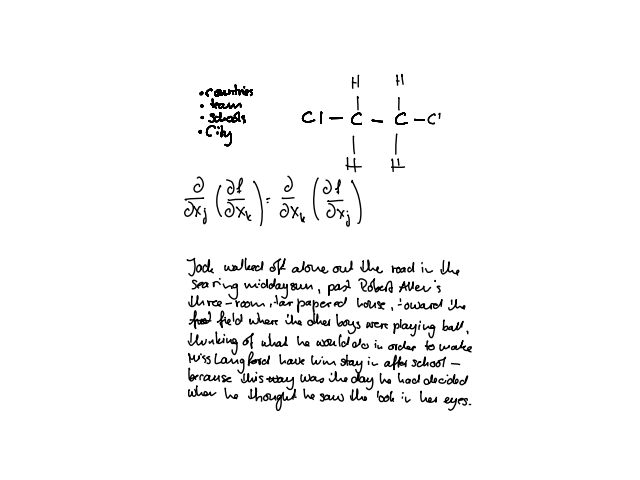 • Countries
• team
• schools
• City
H H
Cl – C – C – Cl
H H
∂/∂xj (∂f/∂xk) = ∂/∂xk (∂f/∂xj)
Jack walked off alone out the road in the
searing midday sun, past Robert Allen's
three-room, tar papered house, toward the
field where the other boys were playing ball,
thinking of what he would do in order to make
Miss Langford have him stay in after school –
because this way was the day he had decided
when he thought he saw the look in her eyes.